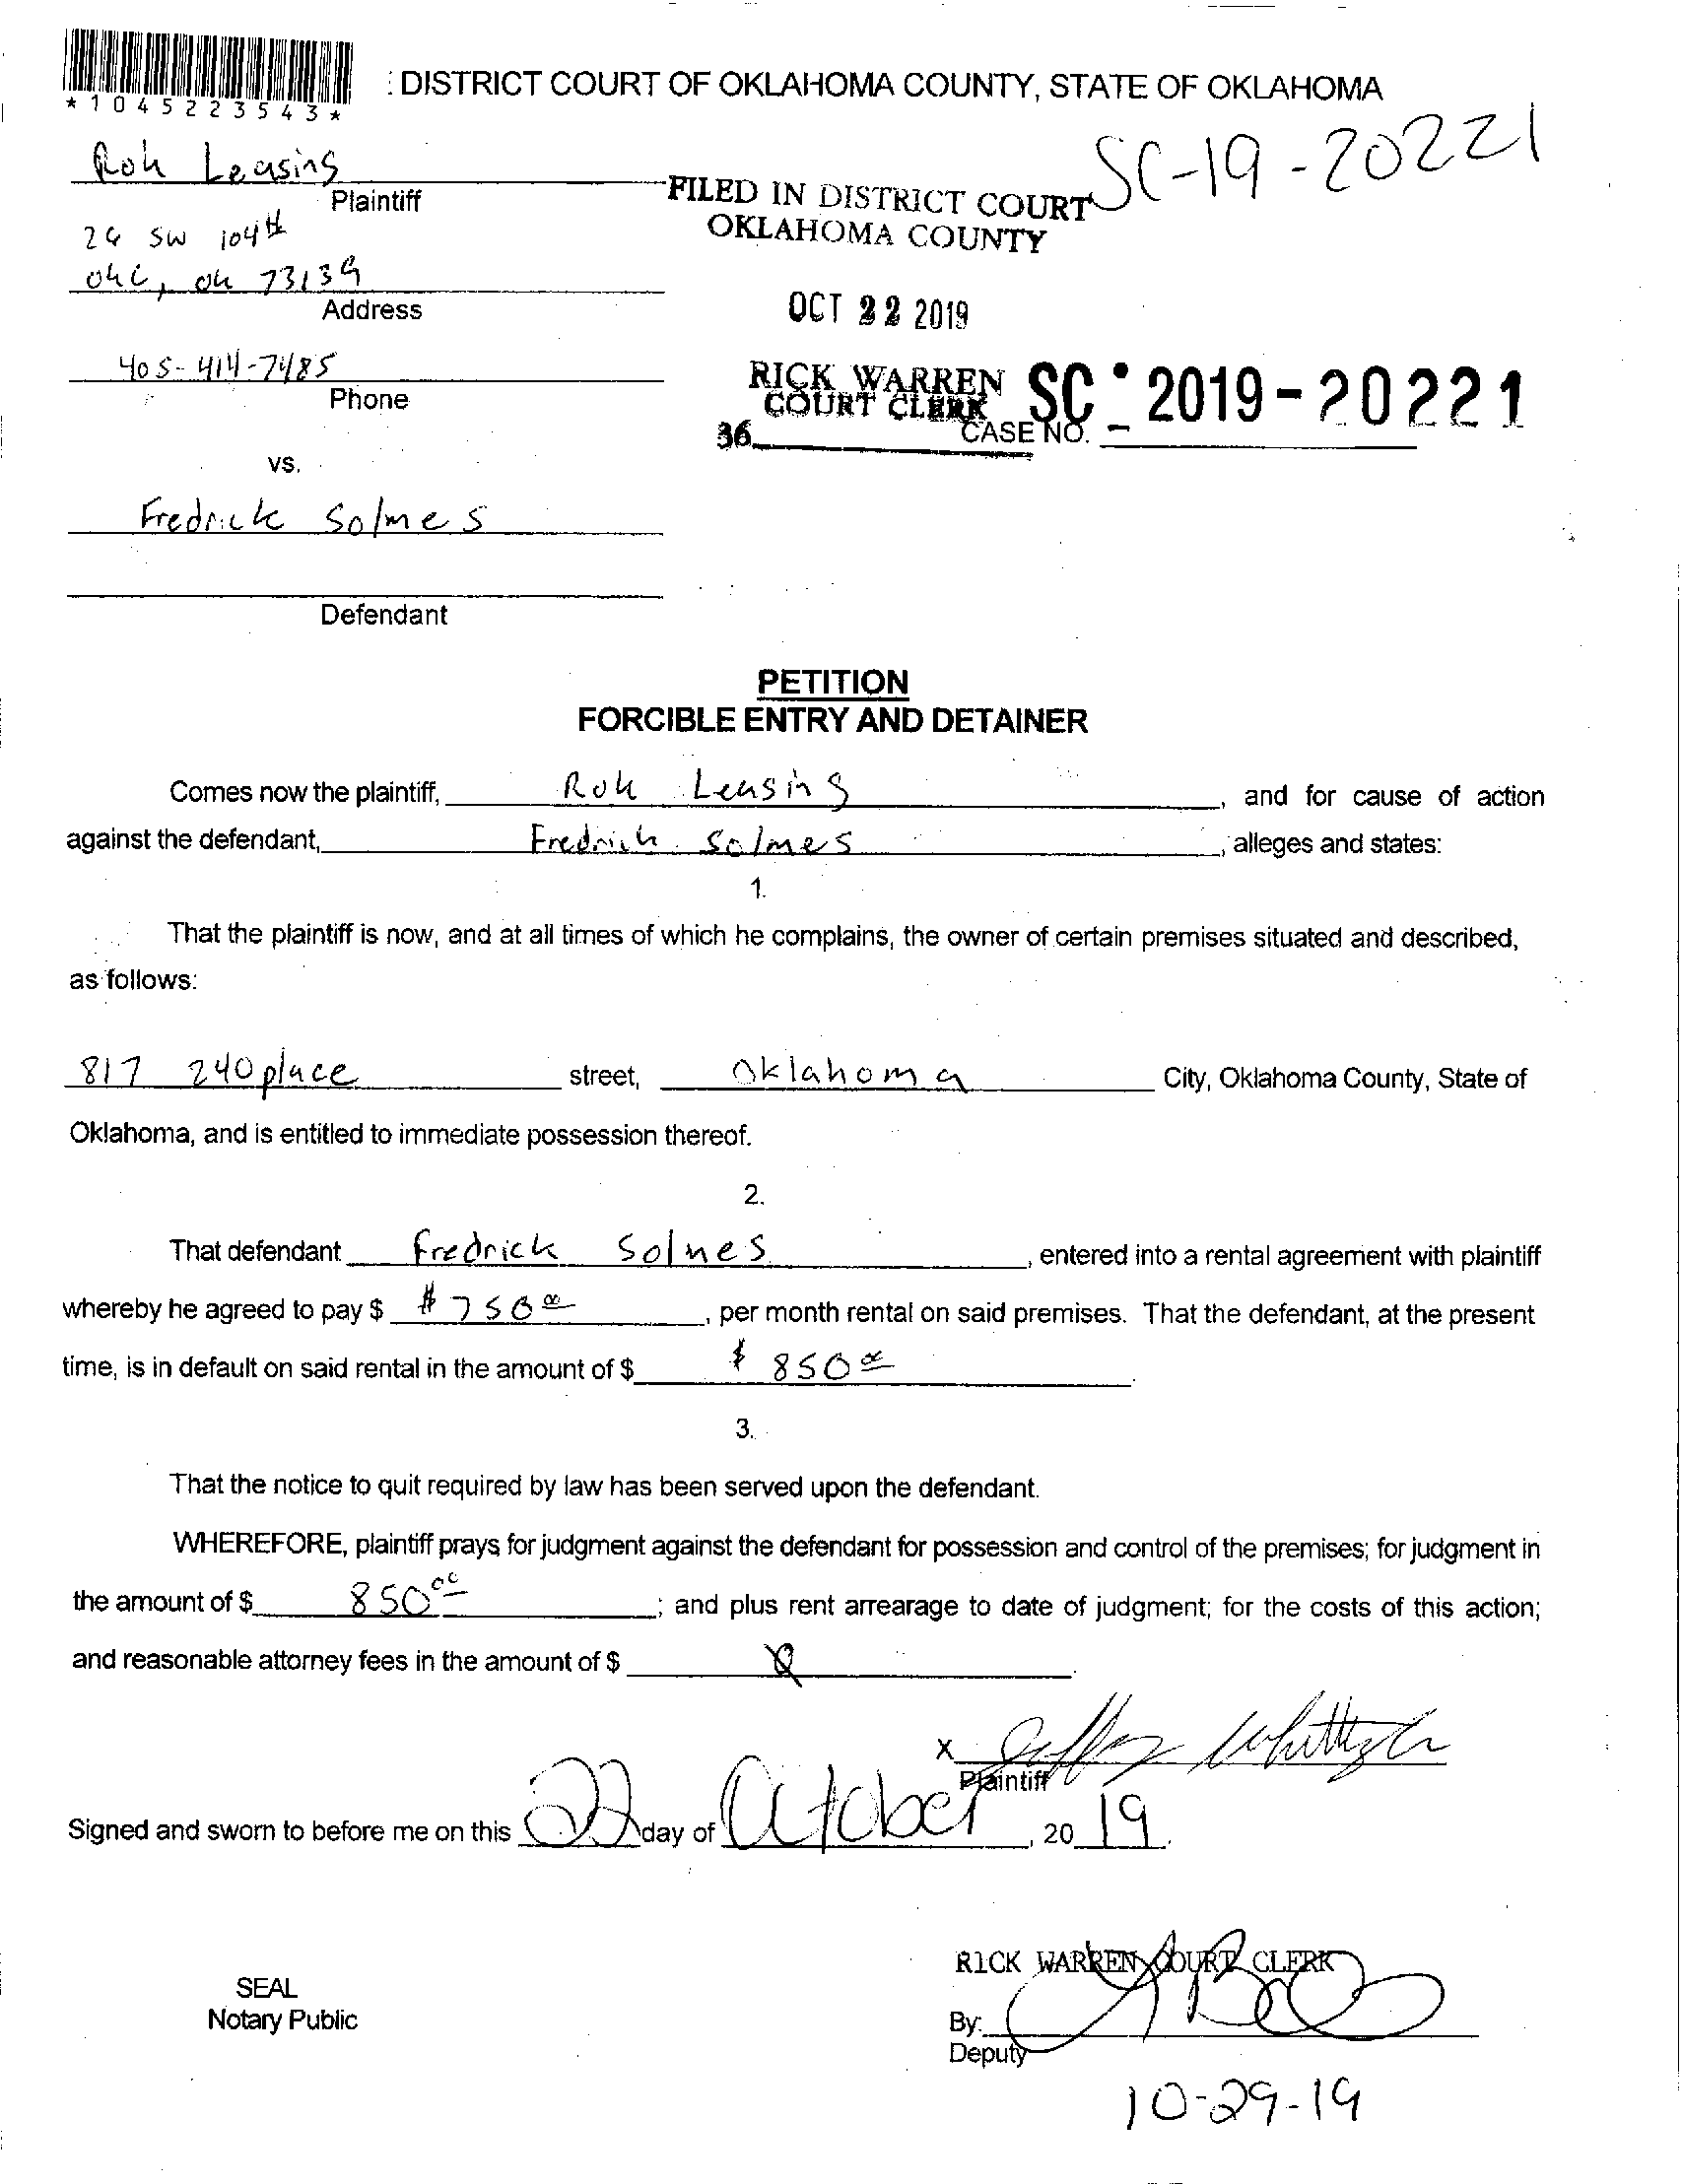 *1045223543*
: DISTRICT COURT OF OKLAHOMA COUNTY, STATE OF OKLAHOMA
SC-19-20221
Rok Leasing
Plaintiff
FILED IN DISTRICT COURT
OKLAHOMA COUNTY
SW 104th
okc, ok 73139
Address
OCT 22 2019
405-414-7485
Phone
RICK WARREN
COURT CLERK
SC - 2019-20221
36
CASE NO.
vs.
Fredrick Solmes
Defendant
PETITION
FORCIBLE ENTRY AND DETAINER
Comes now the plaintiff, Rok Leasing, and for cause of action
against the defendant, Fredrick Solmes, alleges and states:
1.
That the plaintiff is now, and at all times of which he complains, the owner of certain premises situated and described,
as follows:
817 240 place street, Oklahoma City, Oklahoma County, State of
Oklahoma, and is entitled to immediate possession thereof.
2.
That defendant Fredrick Solmes, entered into a rental agreement with plaintiff
whereby he agreed to pay $ $ 750 00, per month rental on said premises. That the defendant, at the present
time, is in default on said rental in the amount of $ $ 850 00.
3.
That the notice to quit required by law has been served upon the defendant.
WHEREFORE, plaintiff prays for judgment against the defendant for possession and control of the premises; for judgment in
the amount of $ 850 00; and plus rent arrearage to date of judgment; for the costs of this action;
and reasonable attorney fees in the amount of $
X
Plaintiff
Signed and sworn to before me on this 22 day of October, 20 19.
RICK WARREN COURT CLERK
SEAL
Notary Public
By:
Deputy
10-29-19